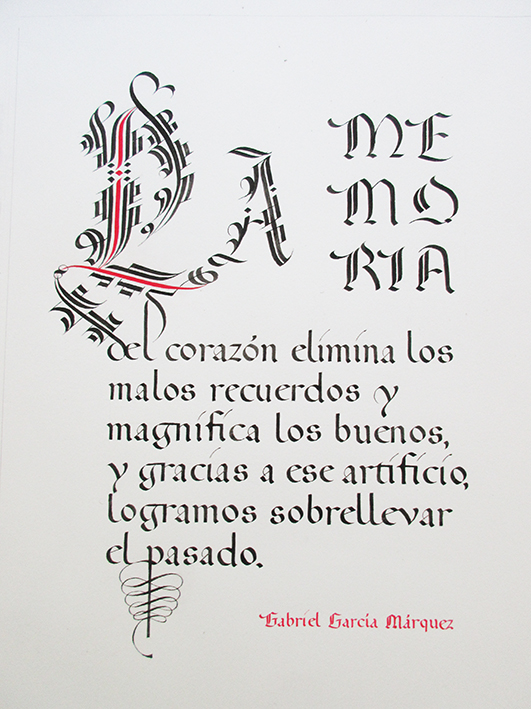 La
ME
MO
RIA
del corazón elimina los
malos recuerdos y
magnifica los buenos,
y gracias a ese artificio,
logramos sobrellevar
el pasado.
Gabriel García Márquez